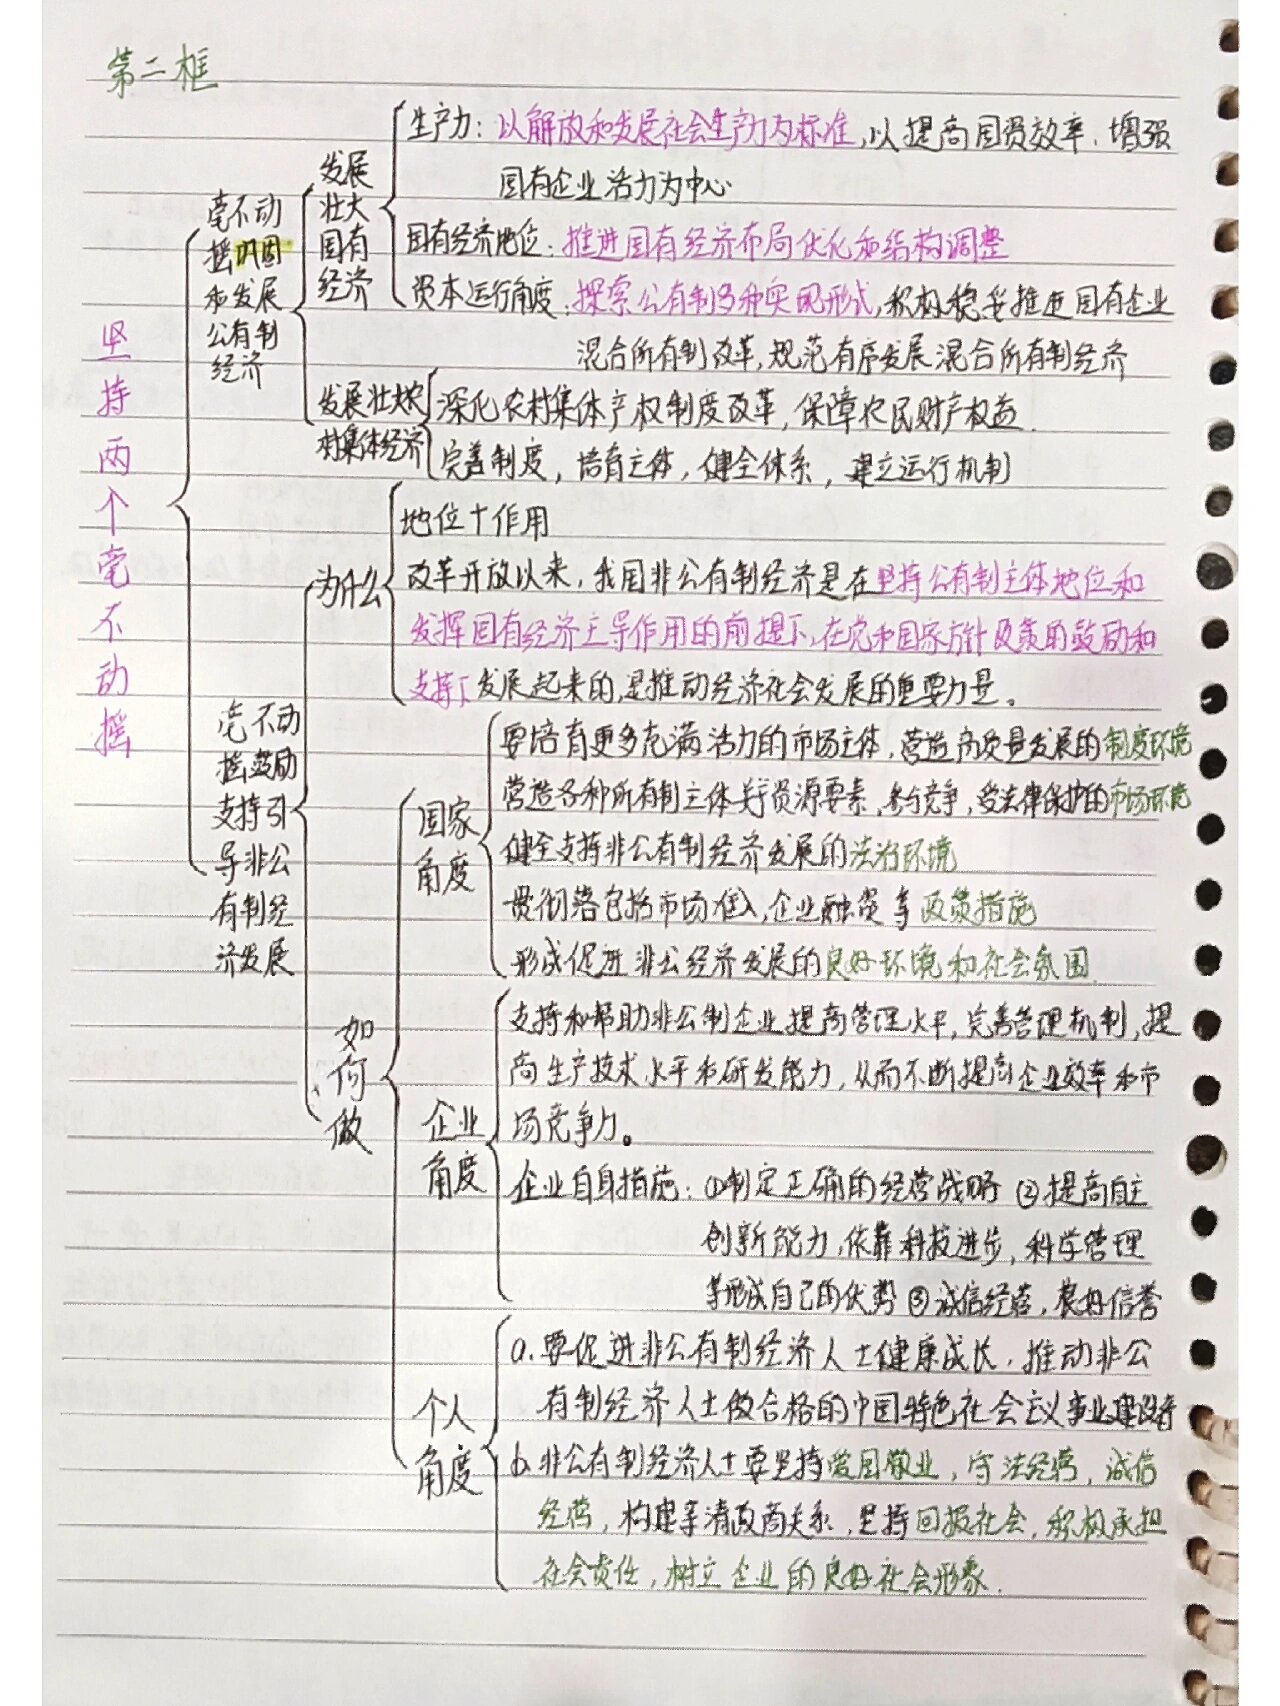 第二框
坚持两个毫不动摇
毫不动
摇巩固
和发展
公有制
经济
发展
壮大
国有
经济
生产力：以解放和发展社会生产力为标准，以提高国资效率、增强
国有企业活力为中心
国有经济地位：推进国有经济布局优化和结构调整
资本运行角度：探索公有制多种实现形式，积极稳妥推进国有企业
混合所有制改革，规范有序发展混合所有制经济
发展壮大农
村集体经济
深化农村集体产权制度改革，保障农民财产权益.
完善制度，培育主体，健全体系，建立运行机制
毫不动
摇鼓励
支持引
导非公
有制经
济发展
为什么
地位+作用
改革开放以来，我国非公有制经济是在坚持公有制主体地位和
发挥国有经济主导作用的前提下，在党和国家方针政策的鼓励和
支持下发展起来的，是推动经济社会发展的重要力量。
如何做
国家
角度
要培育更多充满活力的市场主体，营造高质量发展的制度环境
营造各种所有制主体资源要素，参与竞争，受法律保护的市场环境
健全支持非公有制经济发展的法治环境
贯彻落包括市场准入，企业融资等政策措施
形成促进非公经济发展的良好环境和社会氛围
企业
角度
支持和帮助非公制企业提高管理水平，完善管理机制，提
高生产技术水平和研发能力，从而不断提高企业效率和市
场竞争力。
企业自身措施：①制定正确的经营战略 ②提高自主
创新能力，依靠科技进步，科学管理
等形成自己的优势 ③诚信经营，良好信誉
个人
角度
a.要促进非公有制经济人士健康成长，推动非公
有制经济人士做合格的中国特色社会主义事业建设者
b.非公有制经济人士要坚持爱国敬业，守法经营，诚信
经营，构建亲清政商关系，坚持回报社会，积极承担
社会责任，树立企业的良好社会形象.